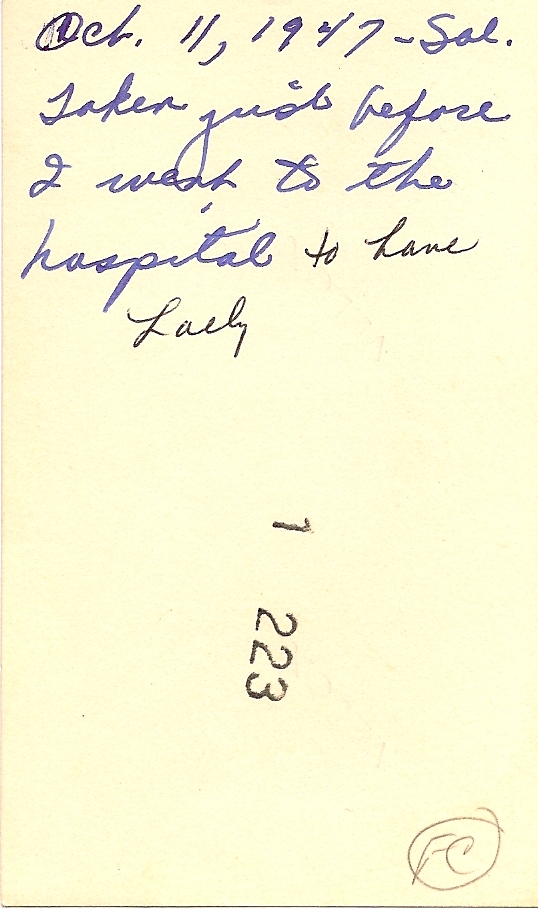 Oct. 11, 1947 - Sat.
Taken just before
I went to the
hospital to have
1 223
FC